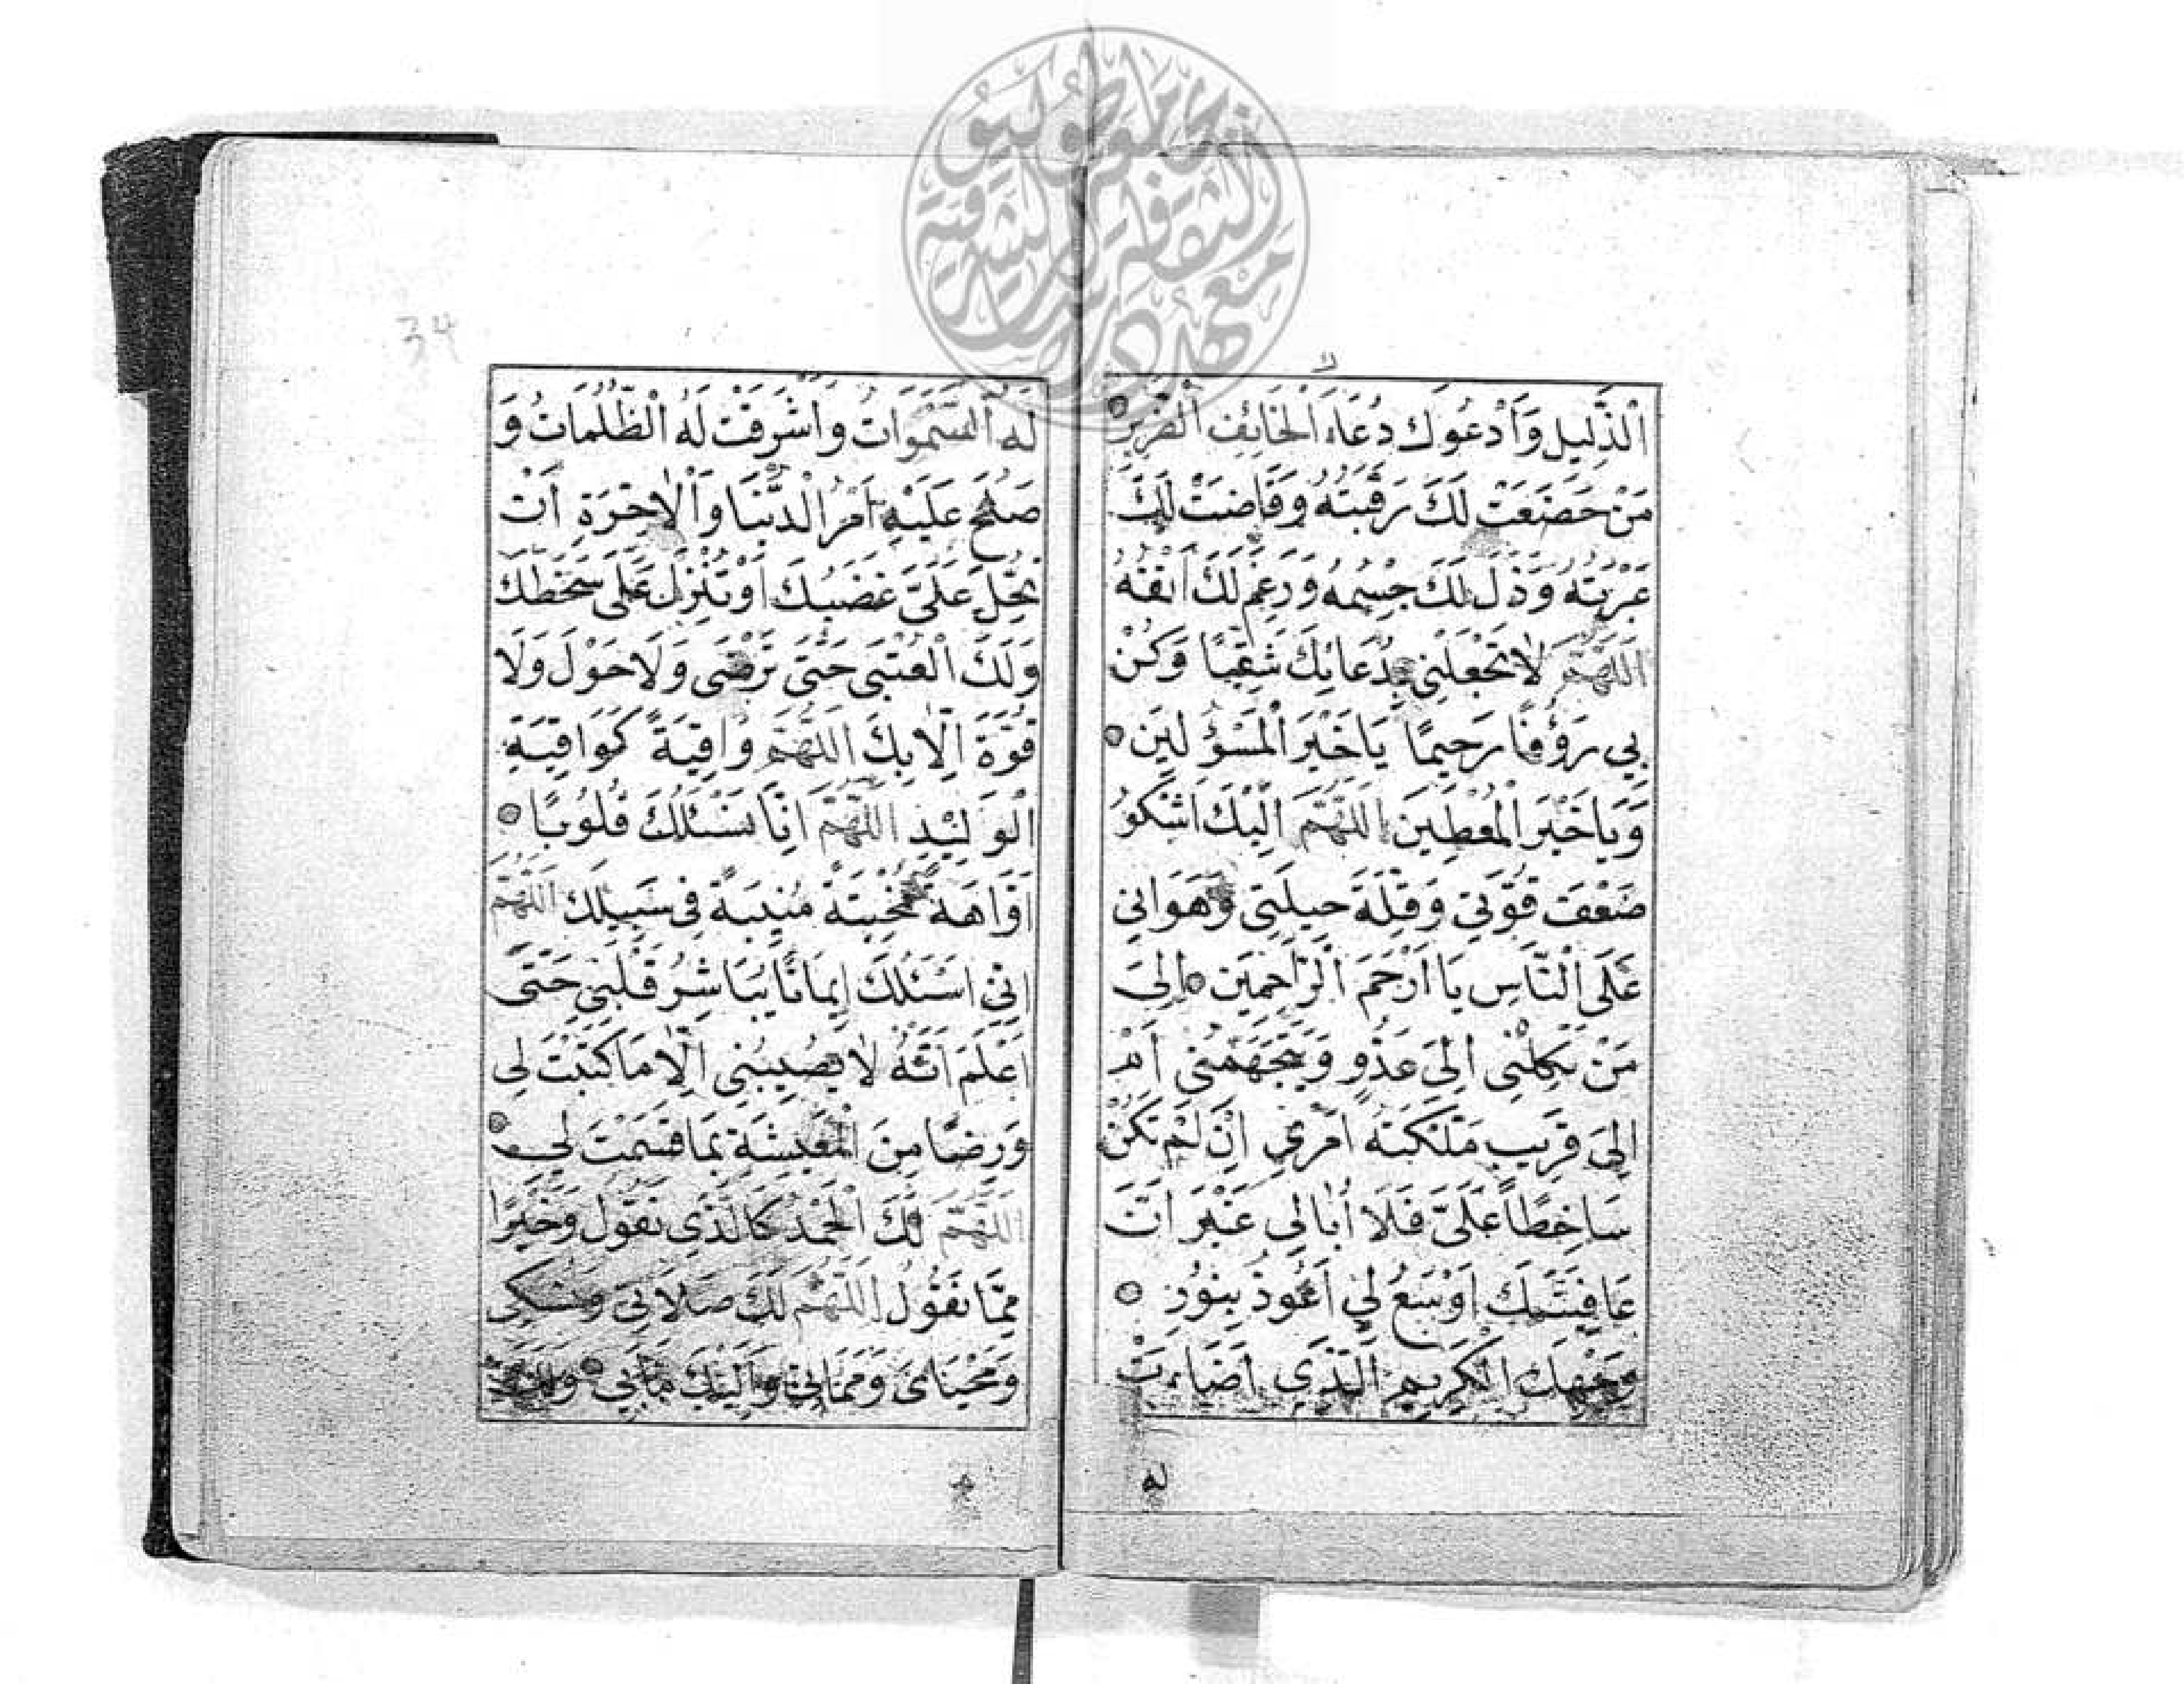 الذَّلِيلِ وَأَدْعُوكَ دُعَاءَ الْخَائِفِ الضَّرِيرِ
مَنْ خَضَعَتْ لَكَ رَقَبَتُهُ وَفَاضَتْ لَكَ
عَبْرَتُهُ وَذَلَّ لَكَ جِسْمُهُ وَرَغِمَ لَكَ أَنْفُهُ
اللَّهُمَّ لَا تَجْعَلْنِي بِدُعَائِكَ شَقِيًّا وَكُنْ
بِي رَؤُفًا رَحِيمًا يَا خَيْرَ الْمَسْؤُلِينَ
وَيَا خَيْرَ الْمُعْطِينَ اللَّهُمَّ إِلَيْكَ أَشْكُو
ضَعْفَ قُوَّتِي وَقِلَّةَ حِيلَتِي وَهَوَانِي
عَلَى النَّاسِ يَا أَرْحَمَ الرَّاحِمِينَ إِلَى
مَنْ تَكِلْنِي إِلَى عَدُوٍّ وَيَتَجَهَّمُنِي أَمْ
إِلَى قَرِيبٍ مَلَّكْتَهُ أَمْرِي إِنْ لَمْ تَكُنْ
سَاخِطًا عَلَيَّ فَلَا أُبَالِي غَيْرَ أَنَّ
عَافِيَتَكَ أَوْسَعُ لِي أَعُوذُ بِنُورِ
وَجْهِكَ الْكَرِيمِ الَّذِي أَضَاءَتْ
له
لَهُ السَّمَوَاتُ وَأَشْرَقَتْ لَهُ الظُّلُمَاتُ وَ
صَلُحَ عَلَيْهِ أَمْرُ الدُّنْيَا وَالْآخِرَةِ أَنْ
تُحِلَّ عَلَيَّ غَضَبَكَ أَوْ تُنْزِلَ عَلَيَّ سَخَطَكَ
وَلَكَ الْعُتْبَى حَتَّى تَرْضَى وَلَا حَوْلَ وَلَا
قُوَّةَ إِلَّا بِكَ اللَّهُمَّ وَاقِيَةً كَوَاقِيَةِ
الْوَلِيدِ اللَّهُمَّ إِنَّا نَسْئَلُكَ قُلُوبًا
أَوَّاهَةً مُخْبِتَةً مُنِيبَةً فِي سَبِيلِكَ اللَّهُمَّ
إِنِّي أَسْئَلُكَ إِيمَانًا يُبَاشِرُ قَلْبِي حَتَّى
أَعْلَمَ أَنَّهُ لَا يُصِيبُنِي إِلَّا مَا كَتَبْتَ لِي
وَرِضًا مِنَ الْمَعِيشَةِ بِمَا قَسَمْتَ لِي
اللَّهُمَّ لَكَ الْحَمْدُ كَالَّذِي نَقُولُ وَخَيْرًا
مِمَّا نَقُولُ اللَّهُمَّ لَكَ صَلَاتِي وَنُسُكِي
وَمَحْيَايَ وَمَمَاتِي وَإِلَيْكَ مَآبِي
34